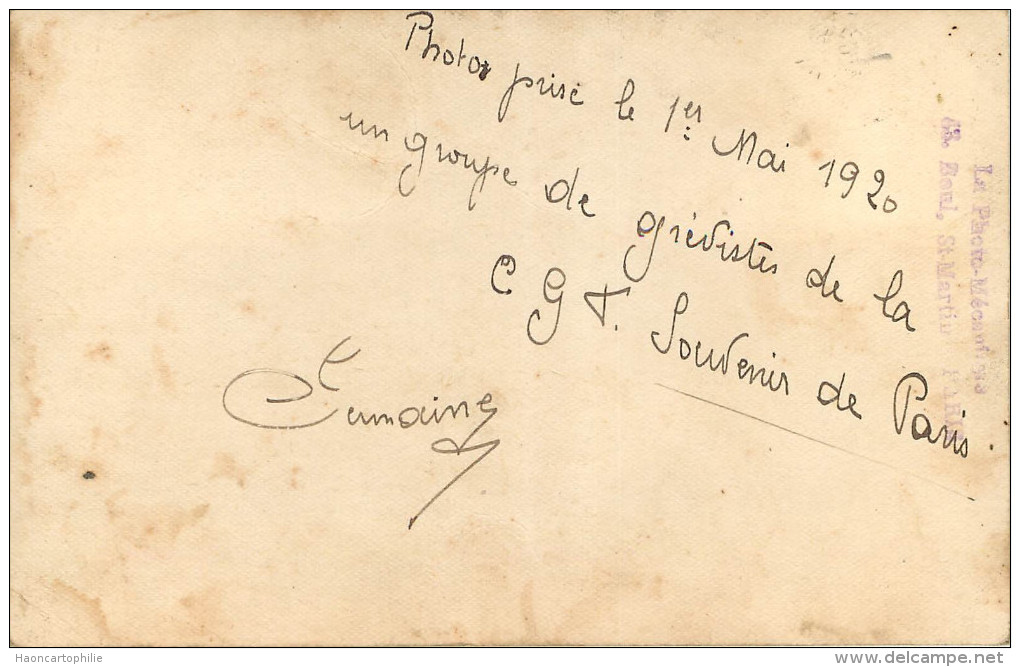 Photo prise le 1er Mai 1920
un groupe de grévistes de la
C G T. Souvenir de Paris
La Photo-Mécanique
Boul. St-Martin PARIS
Haoncartophilie
www.delcampe.net